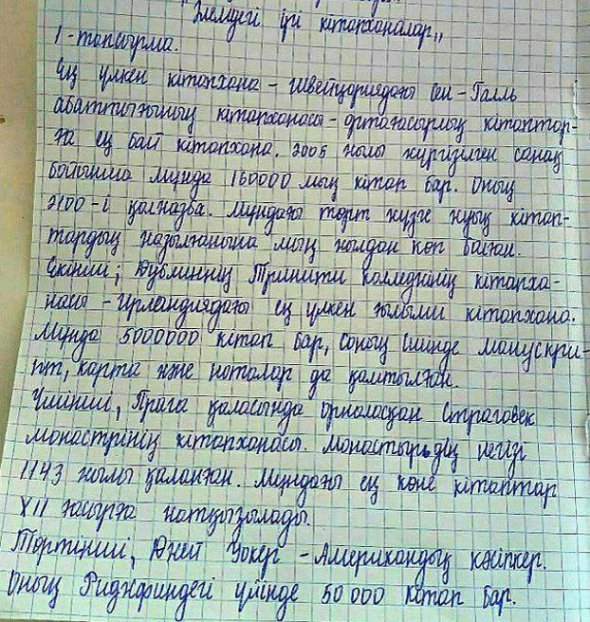 Әлемдегі ірі кітапханалар"
1-тапсырма.
Ең үлкен кітапхана - Швейцариядағы Сен-Галль
абаттығының кітапханасы - ортағасырлық кітаптар-
ға ең бай кітапхана. 2005 жылы жүргізілген санақ
бойынша мұнда 160000 мың кітап бар. Оның
2100-і қолжазба. Мұндағы төрт жүзге жуық кітап-
тардың жазылғанына мың жылдан көп болған.
Екінші; Дублиннің Тринити колледжінің кітапха-
насы - Ирландиядағы ең үлкен ғылыми кітапхана.
Мұнда 5000000 кітап бар, соның ішінде манускри-
пт, карта және ноталар да қамтылған.
Үшінші, Прага қаласында орналасқан Страговек
монастрінің кітапханасы. Монастырьдің негізі
1143 жылы қаланған. Мұндағы ең көне кітаптар
XII ғасырға жатқызылады.
Төртінші, Джей Уокер - Американдық кәсіпкер.
Оның Риджфилдегі үйінде 50 000 кітап бар.